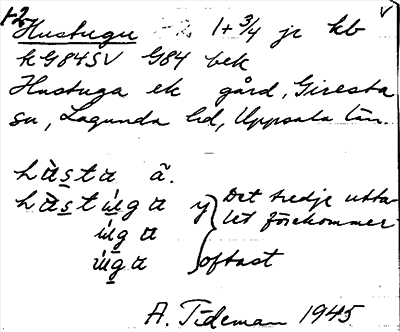 1-2
Hustugu 1+3/4 jr kb
k G84SV G84 bek
Hustuga ek gård, Giresta
sn, Lagunda hd, Uppsala län.
ã.
y Det tredje utta-
let förekommer
oftast
A. Tideman 1945